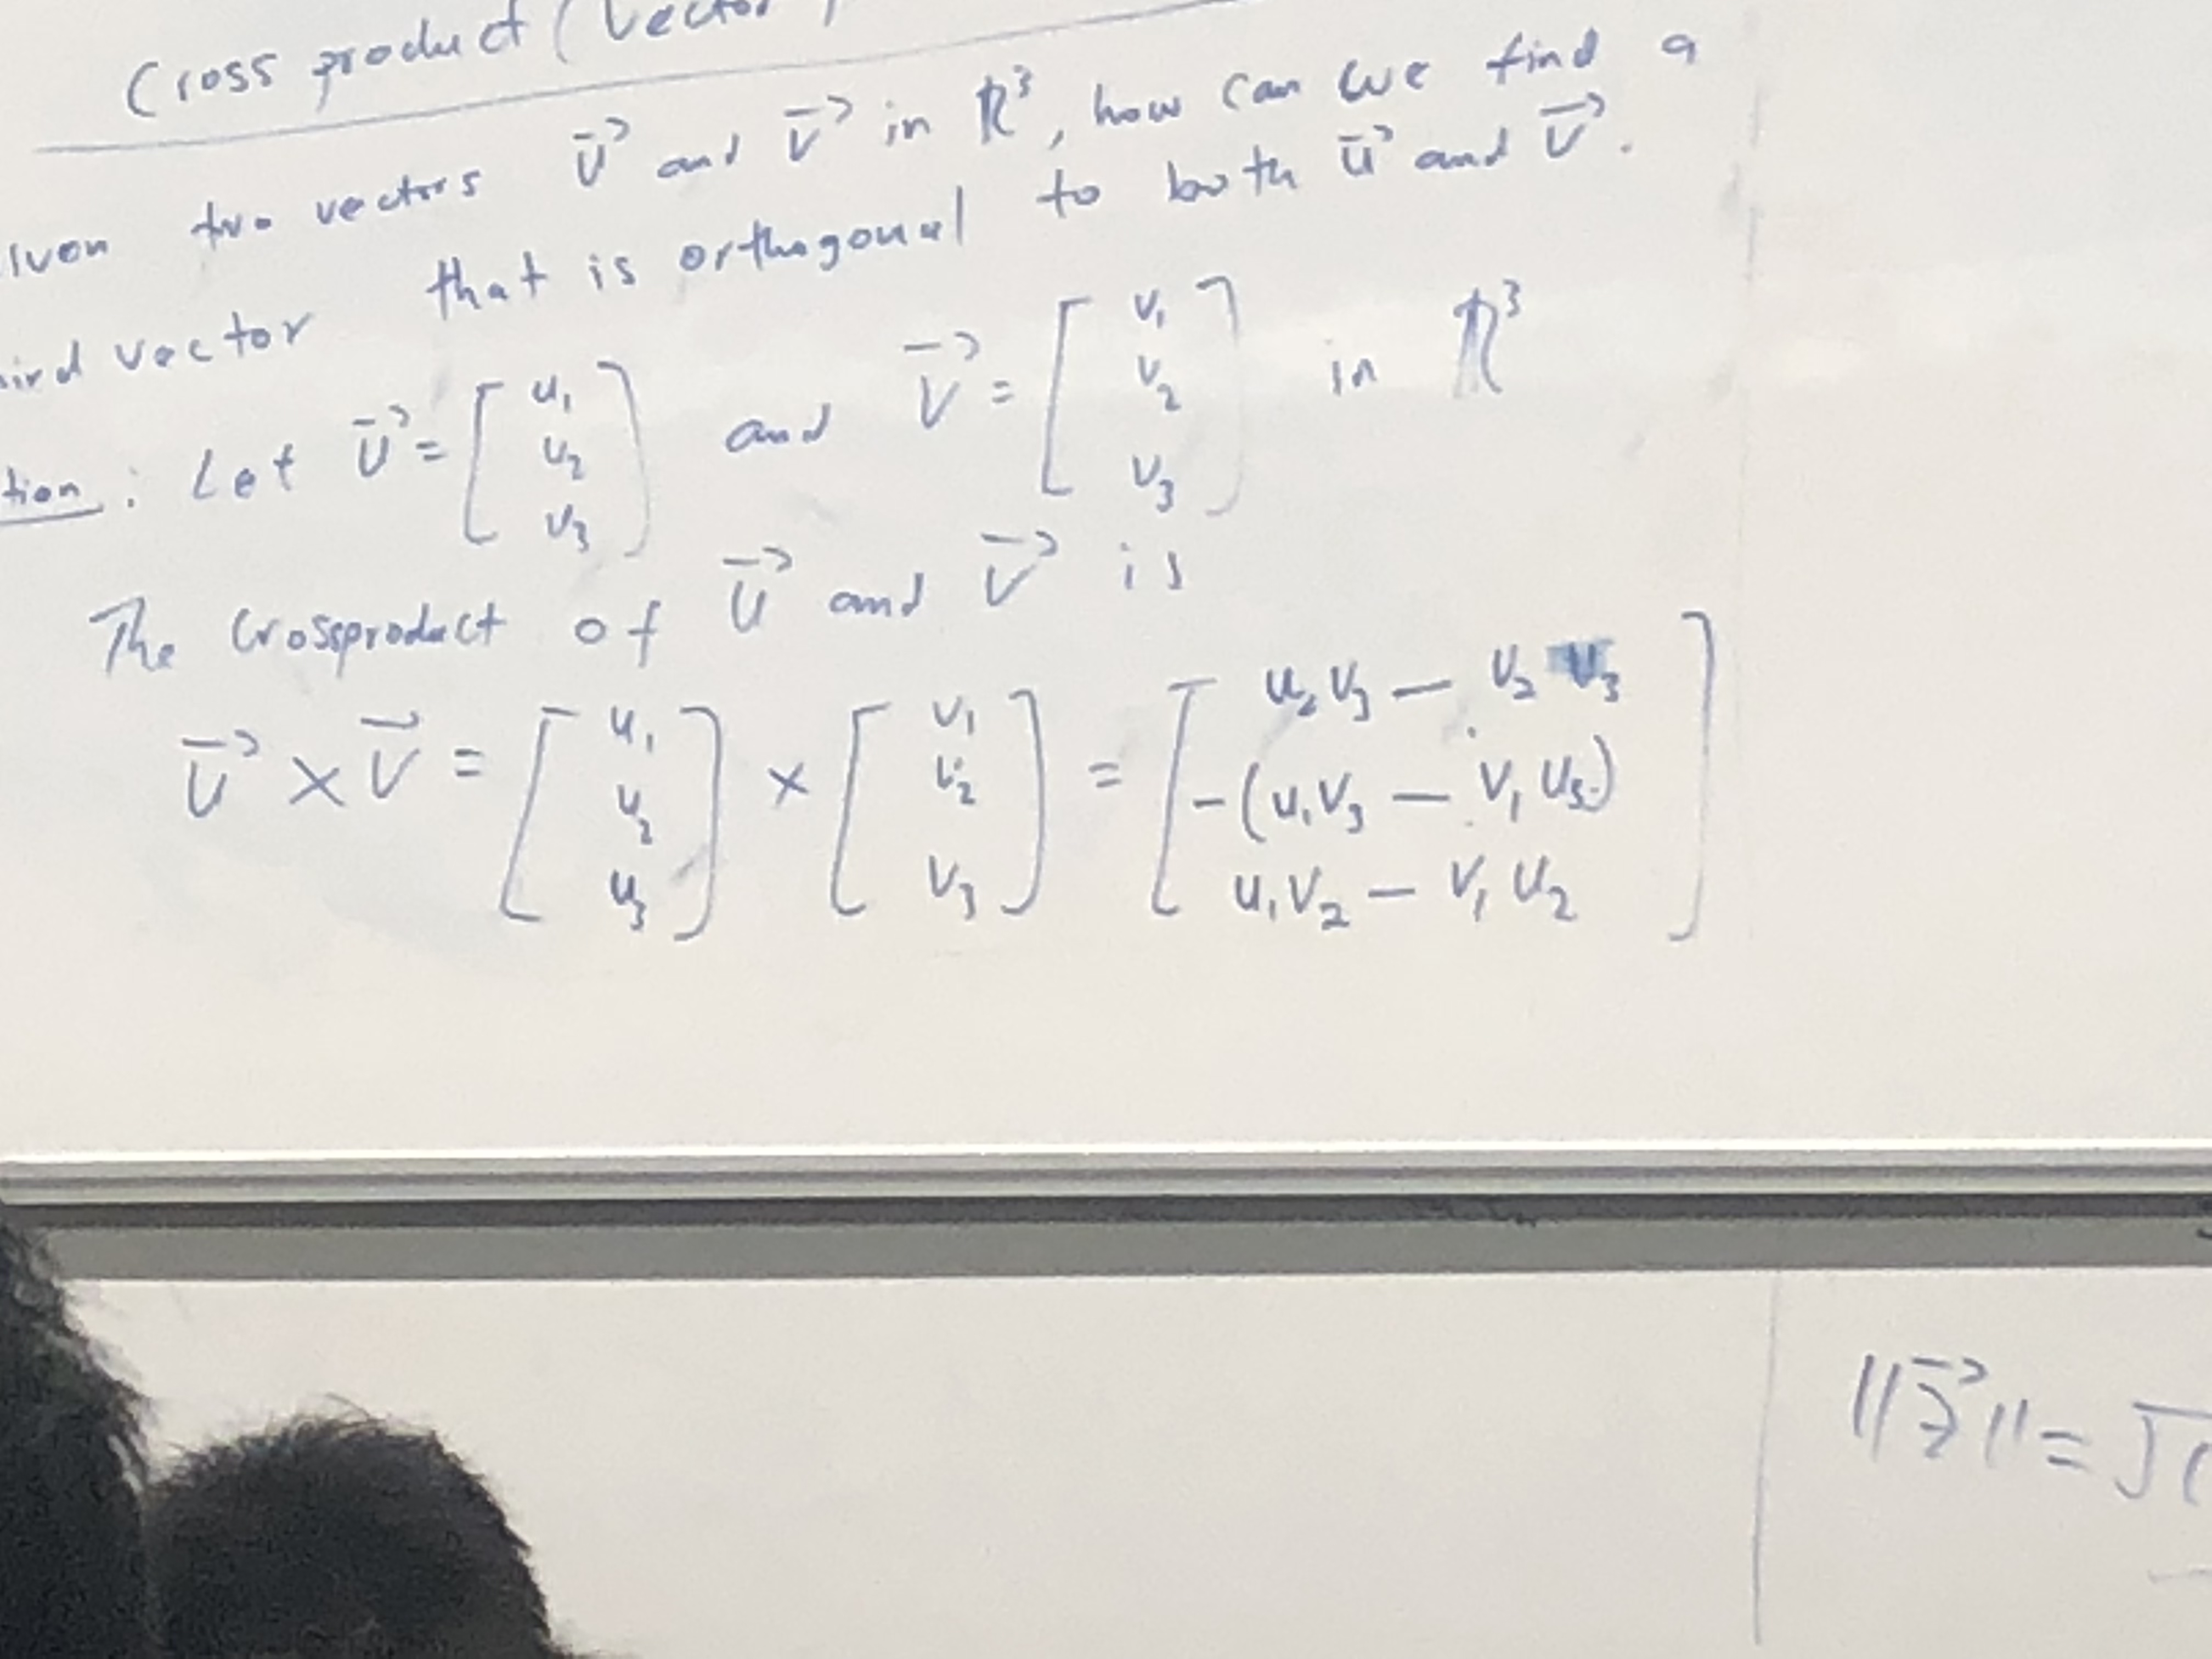 Cross product (Vector
iven two vectors u⃗ and v⃗ in ℝ³, how can we find a
ird vector that is orthogonal to both u⃗ and v⃗.
tion: Let u⃗ = [u₁ u₂ u₃] and v⃗ = [v₁ v₂ v₃] in ℝ³
The Crossproduct of u⃗ and v⃗ is
u⃗ × v⃗ = [u₁ u₂ u₃] × [v₁ v₂ v₃] = [u₂v₃ — v₂u₃
-(u₁v₃ — v₁u₃)
u₁v₂ — v₁u₂]
‖z⃗‖ = √(